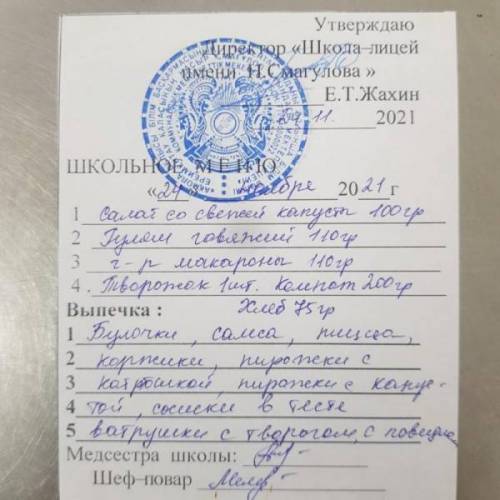 Утверждаю
Директор «Школа–лицей
имени Н.Смагулова »
Е.Т.Жахин
24. 11. 2021
ШКОЛЬНОЕ МЕНЮ
«24» ноября 2021 г
1 Салат со свежей капусты 100гр
2 Гуляш говяжий 110гр
3 г-р макароны 110гр
4. Творожок 1шт. Компот 200гр
Выпечка : Хлеб 75гр
1 Булочки, самса, пицца,
2 коржики, пирожки с
3 картошкой, пирожки с капус-
4 той, сосиски в тесте
5 ватрушки с творогом, с повидлом
Медсестра школы:
Шеф–повар